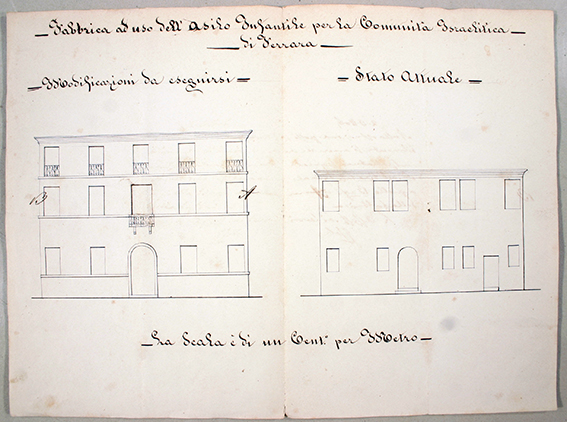 Fabbrica ad uso dell' Asilo Infantile per la Comunità Israelitica
di Ferrara
Modificazioni da eseguirsi
Stato Attuale
B A
La Scala è di un Cent.º per Metro